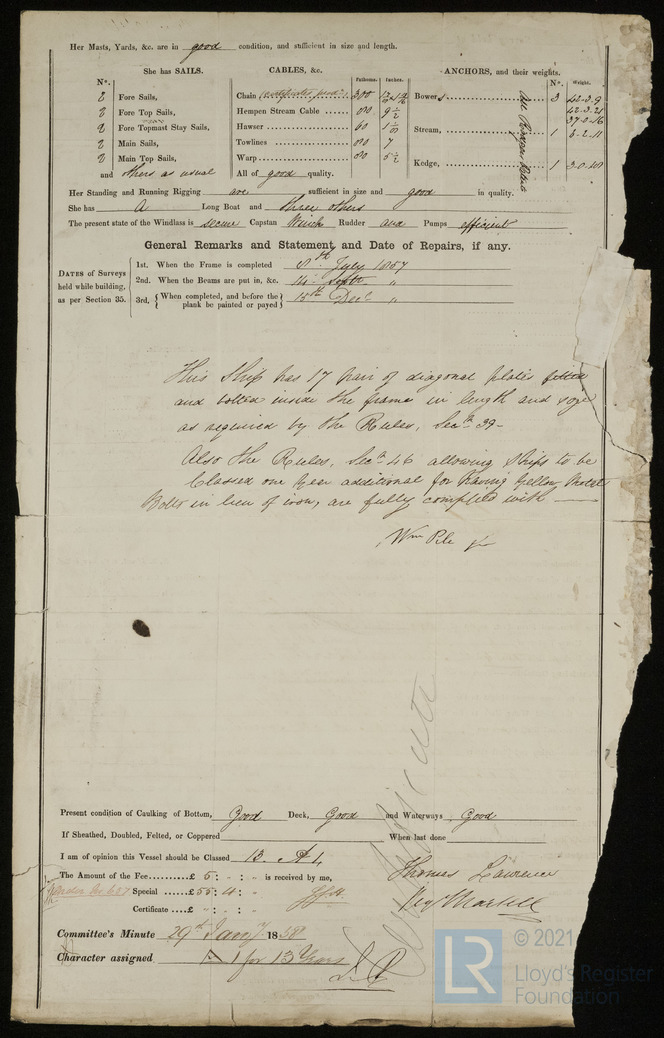 Her Masts, Yards, &c. are in good condition, and sufficient in size and length.
She has SAILS.
N°.
2 Fore Sails,
2 Fore Top Sails,
2 Fore Topmast Stay Sails,
2 Main Sails,
2 Main Top Sails,
and others as usual
CABLES, &c.
Fathoms. Inches.
Chain 300
Hempen Stream Cable 80 9 1/2
Hawser 60
Towlines 80 7
Warp 80 5 1/2
All of good quality.
ANCHORS, and their weights.
N°. Weight.
Bowers 3 42-3-9
42-3-21
37-2-16
Stream, 1
Kedge, 1
Her Standing and Running Rigging are sufficient in size and good in quality.
She has A Long Boat and three others
The present state of the Windlass is secure Capstan Winch Rudder and Pumps efficient
General Remarks and Statement and Date of Repairs, if any.
DATES of Surveys held while building, as per Section 35.
1st. When the Frame is completed 8th July 1857
2nd. When the Beams are put in, &c. 14th Septr "
3rd, {When completed, and before the plank be painted or payed} 15th Decr "
This Ship has 17 pair of diagonal plates fitted
and bolted inside the frame in length and size
as required by the Rules, Secn 39-
Also the Rules, Secn 46 allowing Ships to be
Classed one Year additional for having Yellow Metal
Bolts in lieu of iron, are fully complied with —
Wm Pile Jr
Present condition of Caulking of Bottom, Good Deck, Good and Waterways Good
If Sheathed, Doubled, Felted, or Coppered When last done
I am of opinion this Vessel should be Classed 13 A 1
The Amount of the Fee £ 5 : " : " is received by me,
Special £ 55 : 4 : "
Certificate £ " : " : "
Thomas Lawrence
Committee's Minute 29th Jany 1858
Character assigned A 1 for 13 Years
LR
© 2021
Lloyd's Register
Foundation